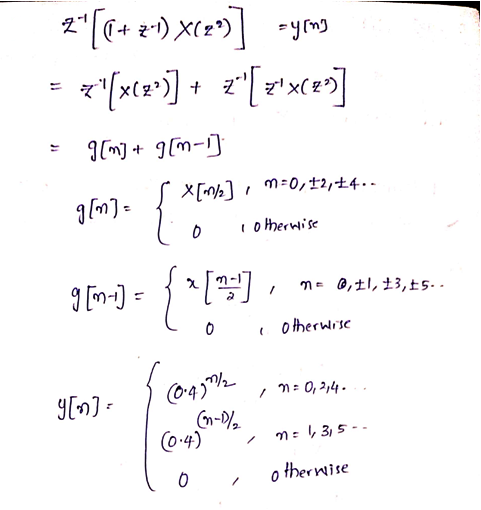 z⁻¹[(1+z⁻¹) X(z²)] = y[n]
= z⁻¹[X(z²)] + z⁻¹[z⁻¹X(z²)]
= g[n] + g[n-1]
g[n] = { X[n/2] , n=0,±2,±4..
0 , otherwise
g[n-1] = { x[(n-1)/2] , n= ±1,±3,±5..
0 , otherwise
y[n] = { (0.4)^(n/2) , n=0,2,4...
(0.4)^((n-1)/2) , n=1,3,5--
0 , otherwise